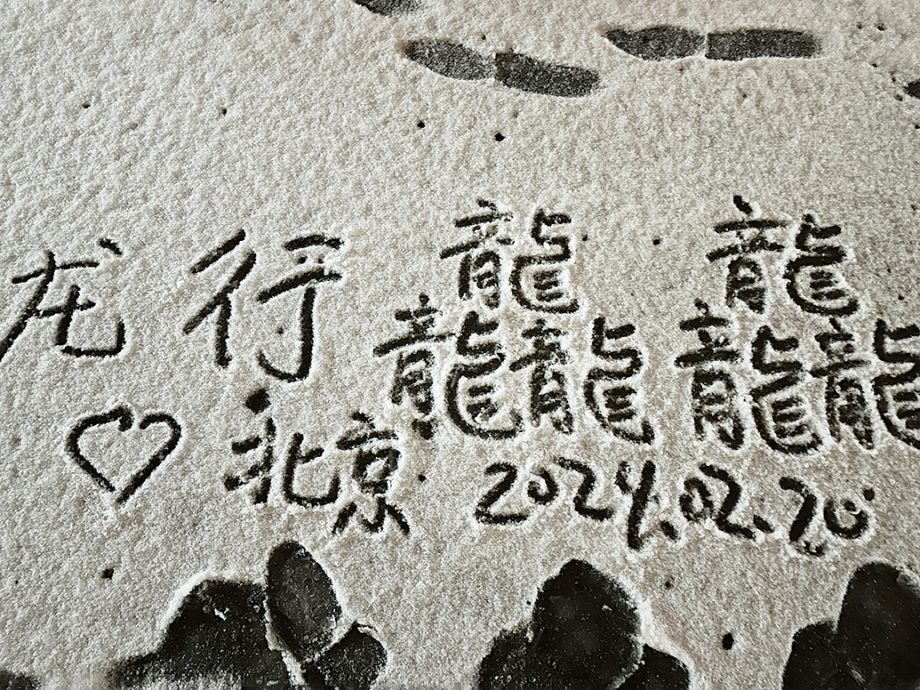 龙行龘龘
北京 2024.02.20